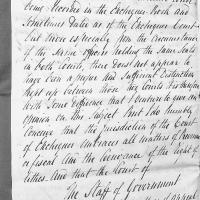 being recorded in the Exchequer Book and
sometimes Dates as of the Exchequer Court
but more especially from the Circumstance
of the same officers holding the same Seats
in both Courts, there does not appear to
have been a proper and sufficient Distinction
kept up between those two Courts
with some diffidence that I venture to give an
opinion on this subject but I do humbly
conceive that the jurisdiction of the Court
of Exchequer embraces all matters of revenue
or fiscal and the of the right of
tithes. And that the Court of
The Staff of Government